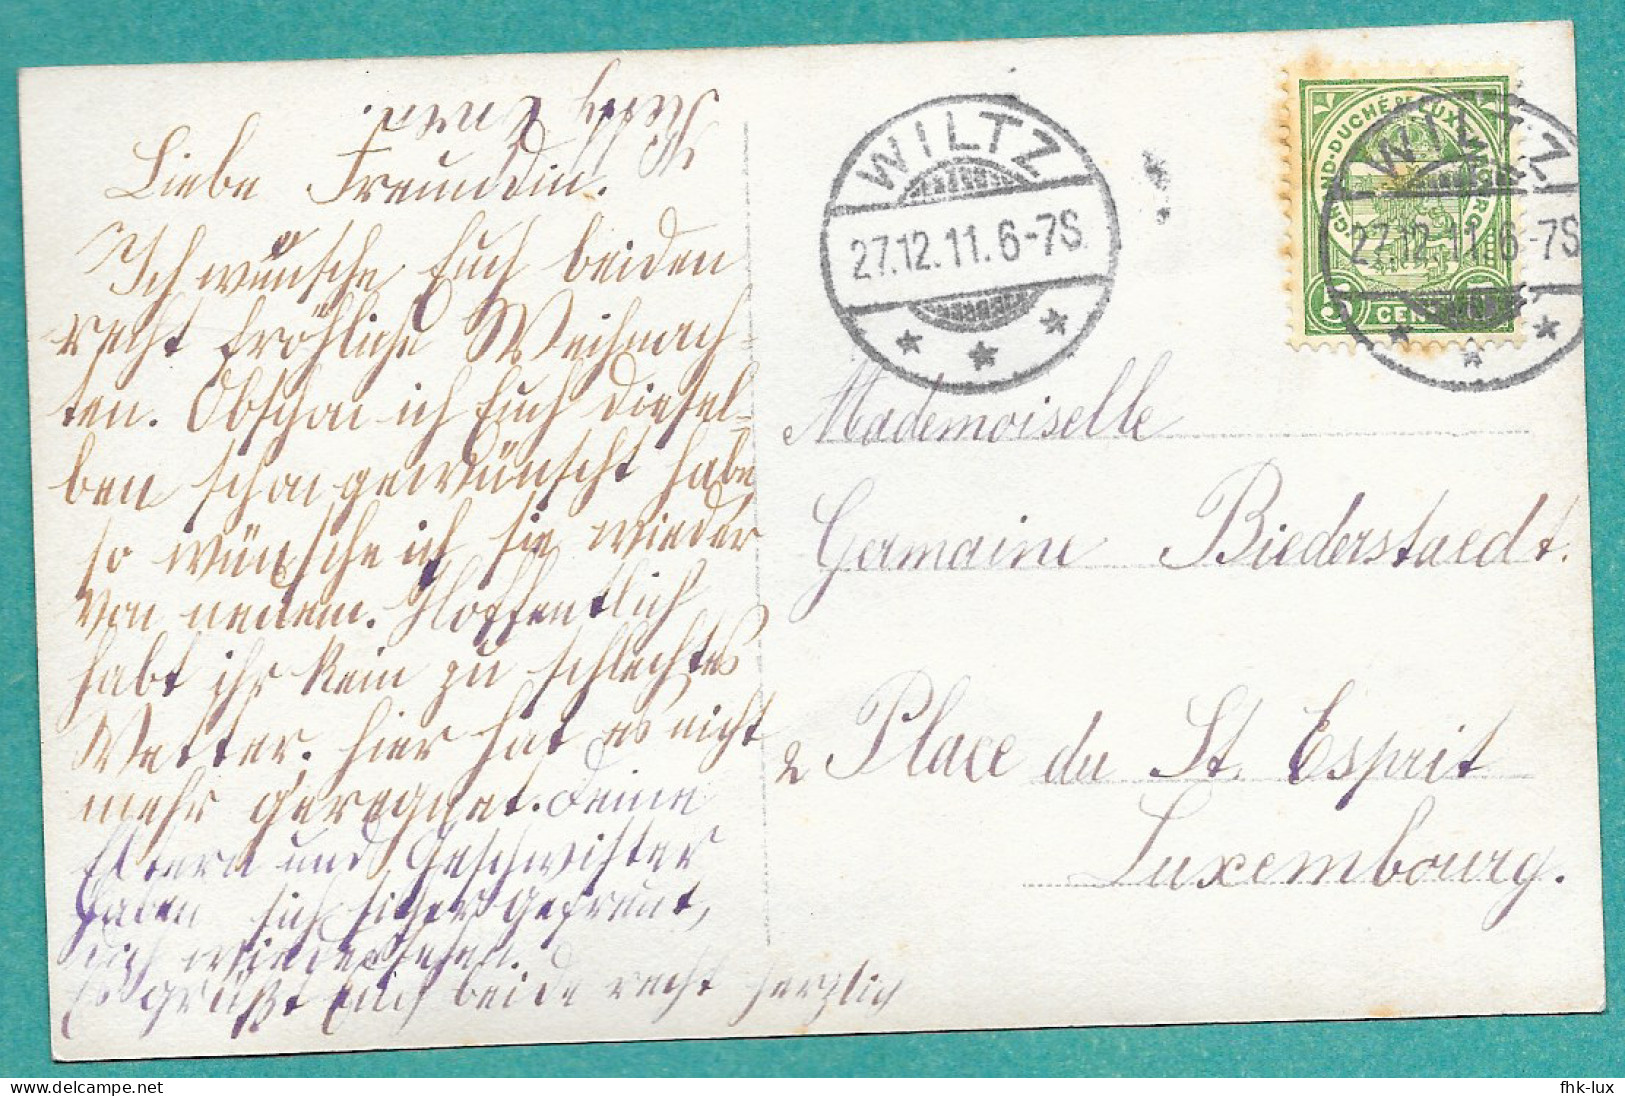 Liebe Freundin.
Ich wünsche Euch beiden
recht fröhliche Weihnach-
ten. Obschon ich Euch diesel-
ben schon gewünscht habe
so wünsche ich sie wieder
von neuem. Hoffentlich
habt ihr kein zu schlechtes
Wetter. hier hat es nicht
mehr geregnet. Deine
Eltern und Geschwister
haben sich sicher gefreut,
dich wiedersehen.
Es grüßt Euch beide recht herzlich
WILTZ
27.12.11.6-7S
GRAND-DUCHÉ DE LUXEMBOURG
5 CENT
WILTZ
27.12.11.6-7S
Mademoiselle
Germaine Biederstaedt.
2 Place du St. Esprit
Luxembourg.
fhk-lux